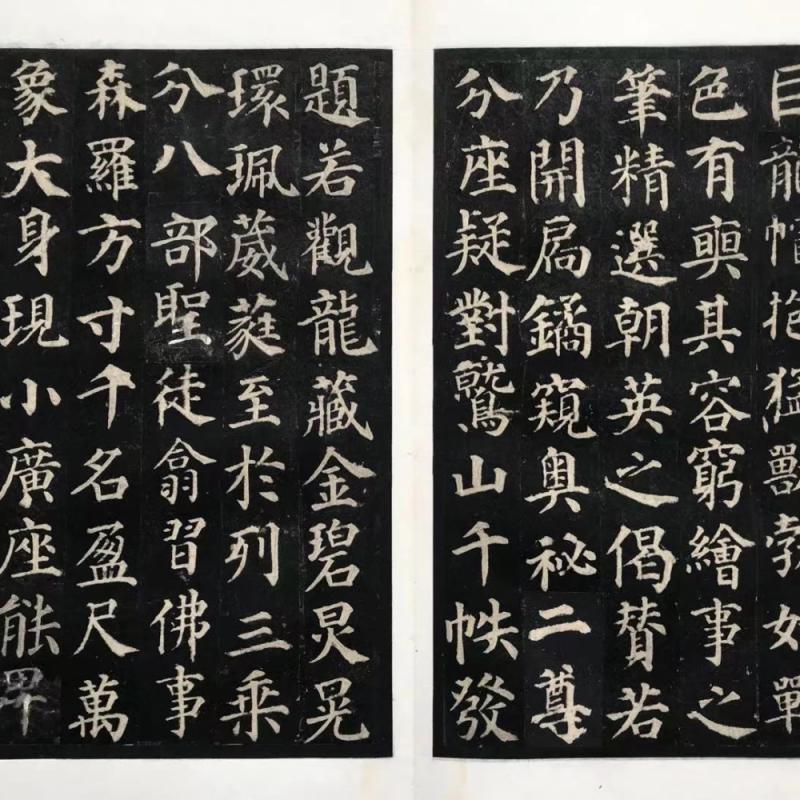 巨龍帽抱猛獸勃如戰
色有奭其容窮繪事之
筆精選朝英之偈贊若
乃開扃鐍窺奧秘二尊
分座疑對鷲山千帙發
題若觀龍藏金碧炅晃
環珮葳蕤至於列三乘
分八部聖徒翕習佛事
森羅方寸千名盈尺萬
象大身現小廣座能卑